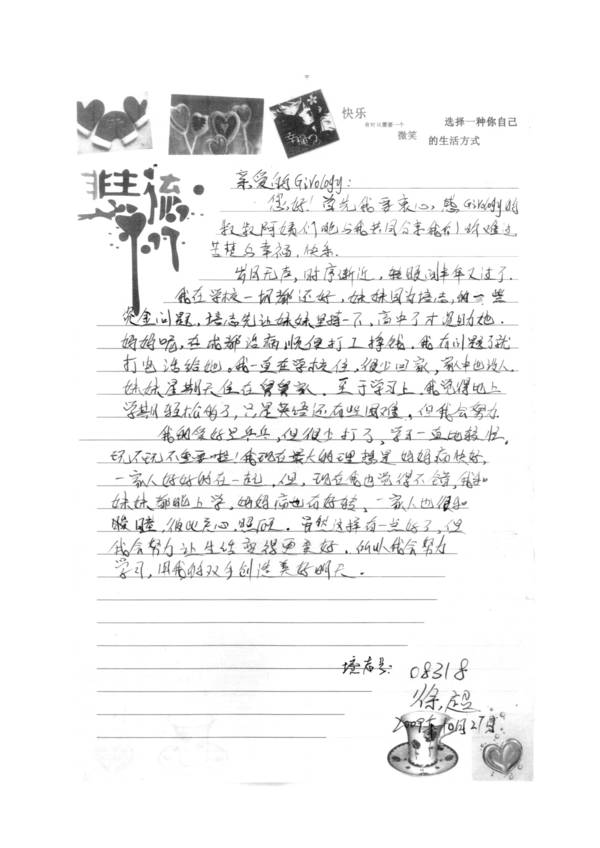 快乐
有时只需要一个
微笑
选择一种你自己
的生活方式
幸福
非主流
亲爱的Givology:
您好！首先我要衷心感Givology的
叔叔阿姨们能与我共同分享我们所难过
苦楚与幸福、快乐.
岁月无声,时序渐近,转眼间半年又过了.
我在学校一切都还好,妹妹因为培志的一些
资金问题,培志先让妹妹里择一下,高中了才资助她.
妈妈呢,在成都治病顺便打工挣钱,我有问题了就
打电话给她.我一直在学校住,很少回家,家中也没人.
妹妹星期天住在舅舅家.至于学习上,我觉得比上
学期轻松的了,只是英语还有些困难,但我会努力
我的爱好是乒乓,但很少打了,学习一直比较忙,
玩不玩不重要啦!我现在最大的理想是妈妈病快好,
一家人好好的在一起,但,现在我也觉得不错,我和
妹妹都能上学,妈妈病也有好转,一家人也很和
睦,彼此关心、照顾.虽然这样有一些好了,但
我会努力让生活变得更美好,所以我会努力
学习,用我的双手创造美好明天.
培志号: 08318
徐超
2009年10月27日